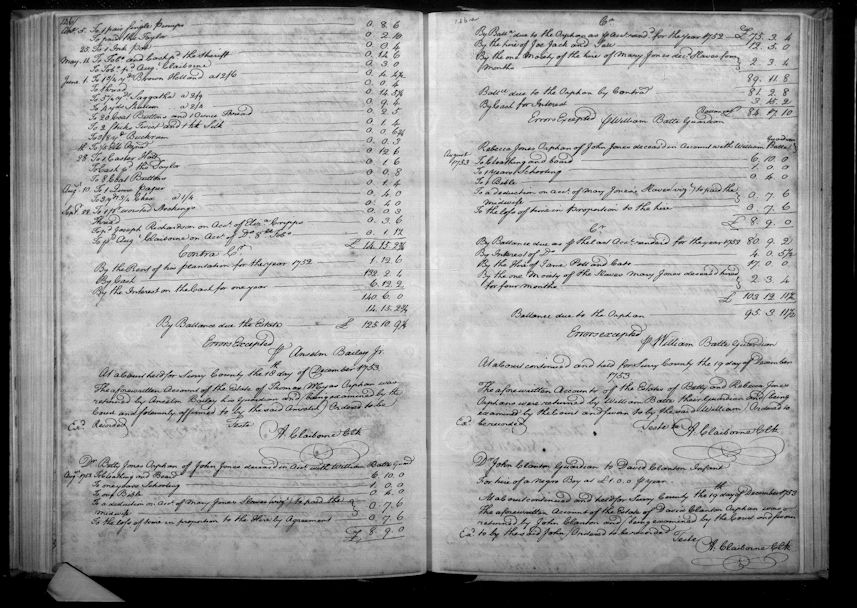 126
Apr. 5. To 1 pair Single Pumps 0. 8. 6
To paid the Taylor 0. 2. 10
25. To 1 Ink Pott 0. 0. 4
May. 11. To Tobo. and Cash pd. the Sheriff 0. 14. 6
To Tobo. pd. Augt. Claiborne 0. 3. 0
June. 1. To 1 3/4 yds. Brown Holland at 2/6 0. 4. 4½
To Thread 0. 0. 4
To yds. Saggatha a 2/9 0. 14.
To yds. Shaloon a 2/2 0. 9. 4
To 20 Coat Buttons and 1 Ounce Thread 0. 2. 5
To 2 Sticks Twist and 1 hk Silk 0. 1. 4
To 3/8 yd. Buckram 0. 0. 6¾
To 0. 0. 3
28. To 1 Castor Hatt 0. 12. 6
To Cash pd. the Taylor 0. 1. 6
To 8 Coat Buttons 0. 0. 8
Augt. 10. To 1 Quire Paper 0. 1. 4
To 3 yds. Chex a 1/4 0. 4. 0
Sept. 28. To 1 pr. worsted Stockings 0. 4. 0
Thread 0. 0. 3
To pd. Joseph Richardson on Acct. of Elizth. Cripps 0. 3. 6
To pd. Augt. Claiborne on Acct. of Do. 8 lb Tobo. 0. 1.
£ 14. 15. 2¾
Contra Cr.
By the Rent of his plantation for the year 1752 1. 12. 6
By Cash 132. 2. 4
By the Interest on the Cash for one year 6. 12. 2
140. 6. 0
14. 15. 2¾
By Ballance due the Estate £ 125. 10. 9¼
Errors Excepted
pr. Anselm Bailey Jr.
At a Court held for Surry County the 18th. day of December 1753
The aforewritten Account of the Estate of Thomas Moyas Orphan was
returned by Anselm Bailey his Guardian and being examined by the
Court and solemnly affirmed to by the said Anselm, Ordered to be
Exd. Recorded
Teste
A. Claiborne Clk
Dr. Betty Jones Orphan of John Jones deceased in Acct. with William Batte Guard
Augt. 1753 To Cloathing and Board 6. 10. 0
To one years Schooling 1. 0. 0
To one Bible 0. 4. 0
To a deduction on Acct. of Mary Jones's Slaves (vizt.) to paid the
midwife 0. 7. 6
To the loss of time in proportion to the Hire by Agreement 0. 7. 6
£ 8. 9. 0
Cr.
By Ballce. due to the Orphan as pr. Acct. rend. for the year 1752 £ 75. 3. 4
By the hire of Joe Jack and 12. 5. 0
By the one Moiety of the hire of Mary Jones decd. Slaves four
Months 2. 3. 4
89. 11. 8
Balle. due to the Orphan by Contra 81. 2. 8
By Cash for Interest 3. 15. 2
£ 84. 17. 10
Errors Excepted pr. William Batte Guardian
Rebecca Jones Orphan of John Jones deceased in Account with William Batte Guardian
August 1753 To Cloathing and board 6. 10. 0
To 1 years Schooling 1. 0. 0
To 1 Bible 0. 4. 0
To a deduction on Acct. of Mary Jones's Slaves (vizt.) to paid the
midwife 0. 7. 6
To the loss of time in Proportion to the hire 7. 6
£ 8. 9. 0
Cr.
By Ballance due as pr. the last Acct. rendered for the year 1752 80. 9. 2
By Interest of Do. 4. 0. 5½
By the Hire of Jane, Poll and Cato 17. 0. 0
By the one Moiety of the Slaves Mary Jones deceased hired
for four months 2. 3. 4
£ 103. 12. 11½
Ballance due to the Orphan 95. 3. 11½
Errors excepted
pr. William Batte Guardian
At a Court continued and held for Surry County the 19 day of December
1753
The aforewritten Accounts of the Estates of Betty and Rebecca Jones
Orphans were returned by William Batte their Guardian and being
examined by the Court and sworn to by the said William, Ordered to
Exd. be recorded
Teste
A. Claiborne Clk
Dr. John Clanton Guardian to David Clanton Infant
For hire of a Negro Boy at £ 1. 0. 0 pr. year
At a Court continued and held for Surry County the 19th. day of December 1753
The aforewritten Account of the Estate of David Clanton Orphan was
returned by John Clanton and being examined by the Court and sworn
Exd. to by the said John, Ordered to be recorded
Teste
A. Claiborne Clk